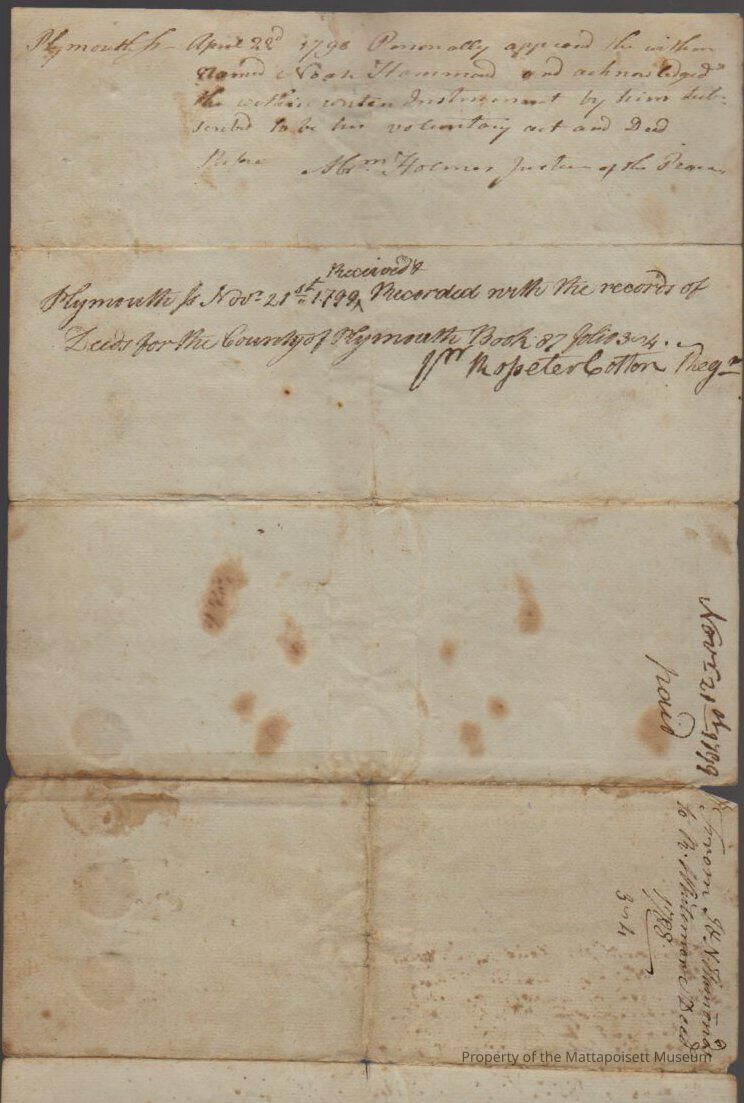 Plymouth ss April 22d 1798 Personally appeard the within
named Noah Hammond and acknowledged
the within writen Instrument by him sub-
scribed to be his voluntary act and Deed
Before Abrm Holmes Justice of the Peace
Received &
Plymouth ss Novr 21st 1799 Recorded with the records of
Deeds for the County of Plymouth Book 87 folio 34.
pr Rosseter Cotton Regr
Novr 21st 1799
From N Hamond
to Whitemore Deed
1798
Property of the Mattapoisett Museum